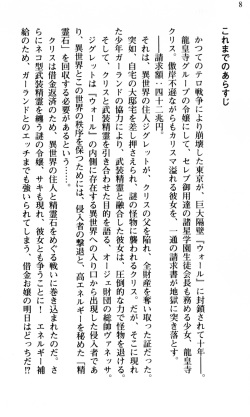 8
これまでのあらすじ
かつてのテロ戦争により崩壊した東京が、巨大隔壁「ウォール」に封鎖されて十年――。
龍皇寺グループの令嬢にして、セレブ御用達の諸星学園生徒会長も務める少女、龍皇寺
クリス。傲岸不遜ながらもカリスマ溢れる彼女を、一通の請求書が地獄に突き落とす。
――請求額・四十二兆円。
それは、異世界の住人ジグレットが、クリスの父を陥れ、全財産を奪い取った証だった。
突如、自宅の大邸宅を差し押さえられ、謎の怪物に襲われるクリス。だが、謎め
た少年ガーランドの協力で、武装精霊と融合した彼女は、圧倒的な力で怪物を退ける。
そして、クリスと武装精霊を引き合わせた目的を語る、オージェ財団の総帥ヴァネッサ。
ジグレットは「ウォール」の内側に存在する異世界への入り口から出現した侵入者であ
り、この世界と異世界の秩序を保つためには、侵入者の撃退と、高エネルギーを秘めた「精
霊石」を回収する必要があるという……。
クリスは借金返済のため、異世界の住人と精霊石をめぐる戦いに巻き込まれるのだった。さ
らにネコ型武装精霊を纏う謎の令嬢、サキも現れ、彼女とも争うことに！　エネルギー補
給のため、ガーランドとのエッチまでも強いられてしまう、借金お嬢の明日はどっちだ!?